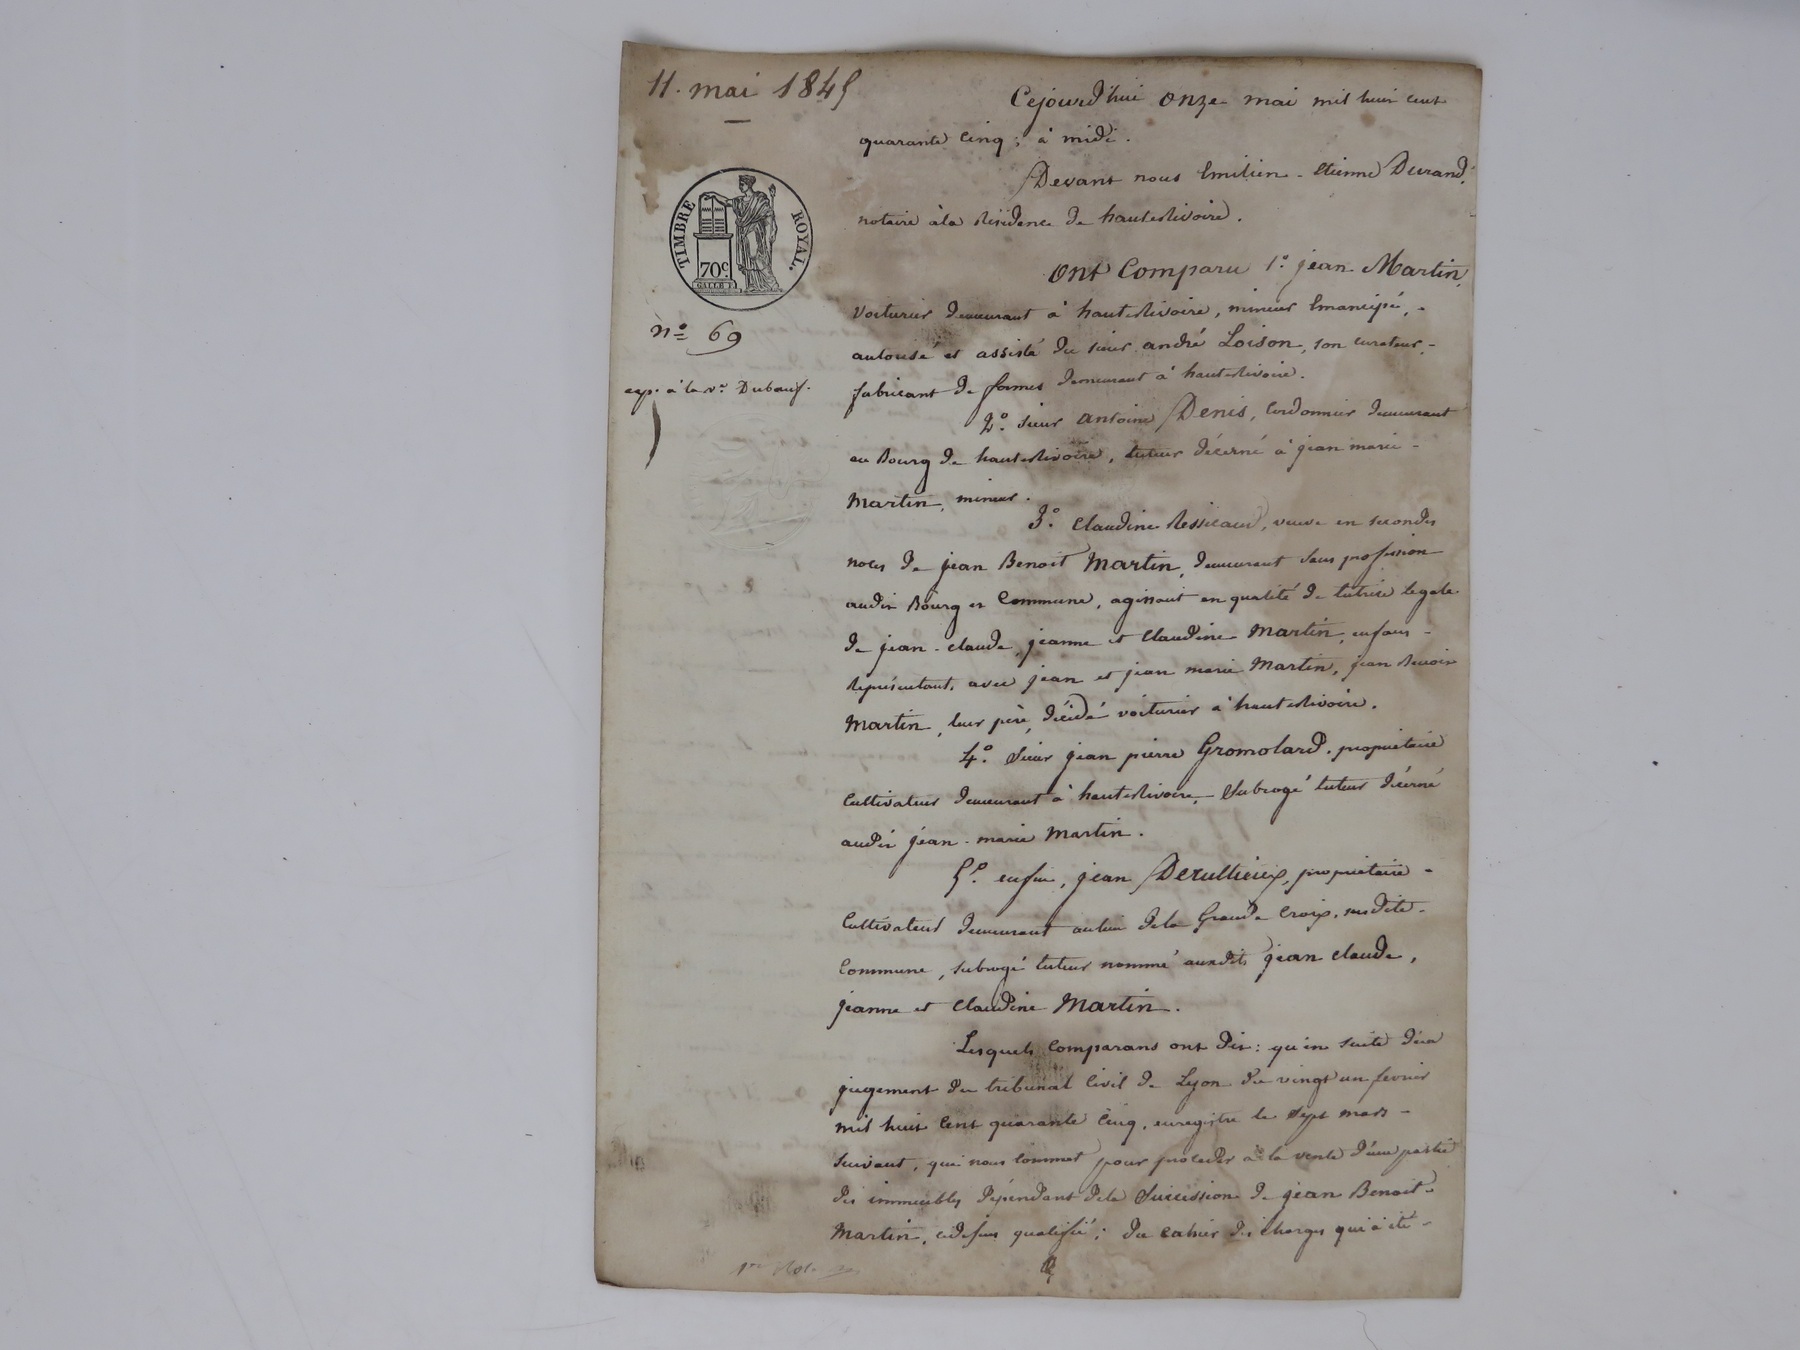 11. mai 1845
Cejourd'hui onze mai mil huit cent
quarante cinq ; à midi .
Devant nous Emilien - Etienne Durand,
notaire à la Résidence de hauterivoire .
TIMBRE ROYAL.
70c.
n° 69
exp. à la ve Dubœuf .
ont Comparu 1° jean Martin,
voiturier demeurant à hauterivoire, mineur Emancipé, -
autorisé et assisté du sieur andré Loison, son curateur, -
fabricant de formes demeurant à hauterivoire .
2° sieur antoine Denis, Cordonnier demeurant
au Bourg de hauterivoire, tuteur décerné à jean marie -
Martin, mineur .
3° Claudine Ressicaud, veuve en secondes
noces de jean Benoit Martin, demeurant sans profession
audit Bourg et Commune, agissant en qualité de tutrice legale
de jean - claude, jeanne et Claudine Martin, enfans -
Représentant, avec jean et jean marie Martin, jean Benoit
Martin, leur père, décédé voiturier à hauterivoire .
4° sieur jean pierre Gromolard, propriétaire
Cultivateur demeurant à hauterivoire, Subrogé tuteur décerné
audit jean - marie Martin .
5° enfin, jean Derultieux, propriétaire -
Cultivateur demeurant au lieu de la Grande Croix, susdite -
Commune, subrogé tuteur nommé auxdits jean claude,
jeanne et Claudine Martin .
Lesquels Comparans ont dit : qu'en suite d'un
jugement du tribunal Civil de Lyon du vingt un fevrier
mil huit Cent quarante Cinq, enregistré le sept mars -
suivant, qui nous Commet pour procéder à la vente d'une partie
des immeubles dépendant de la Succession de jean Benoit -
Martin, cidessus qualifié ; du cahier des charges qui a été -